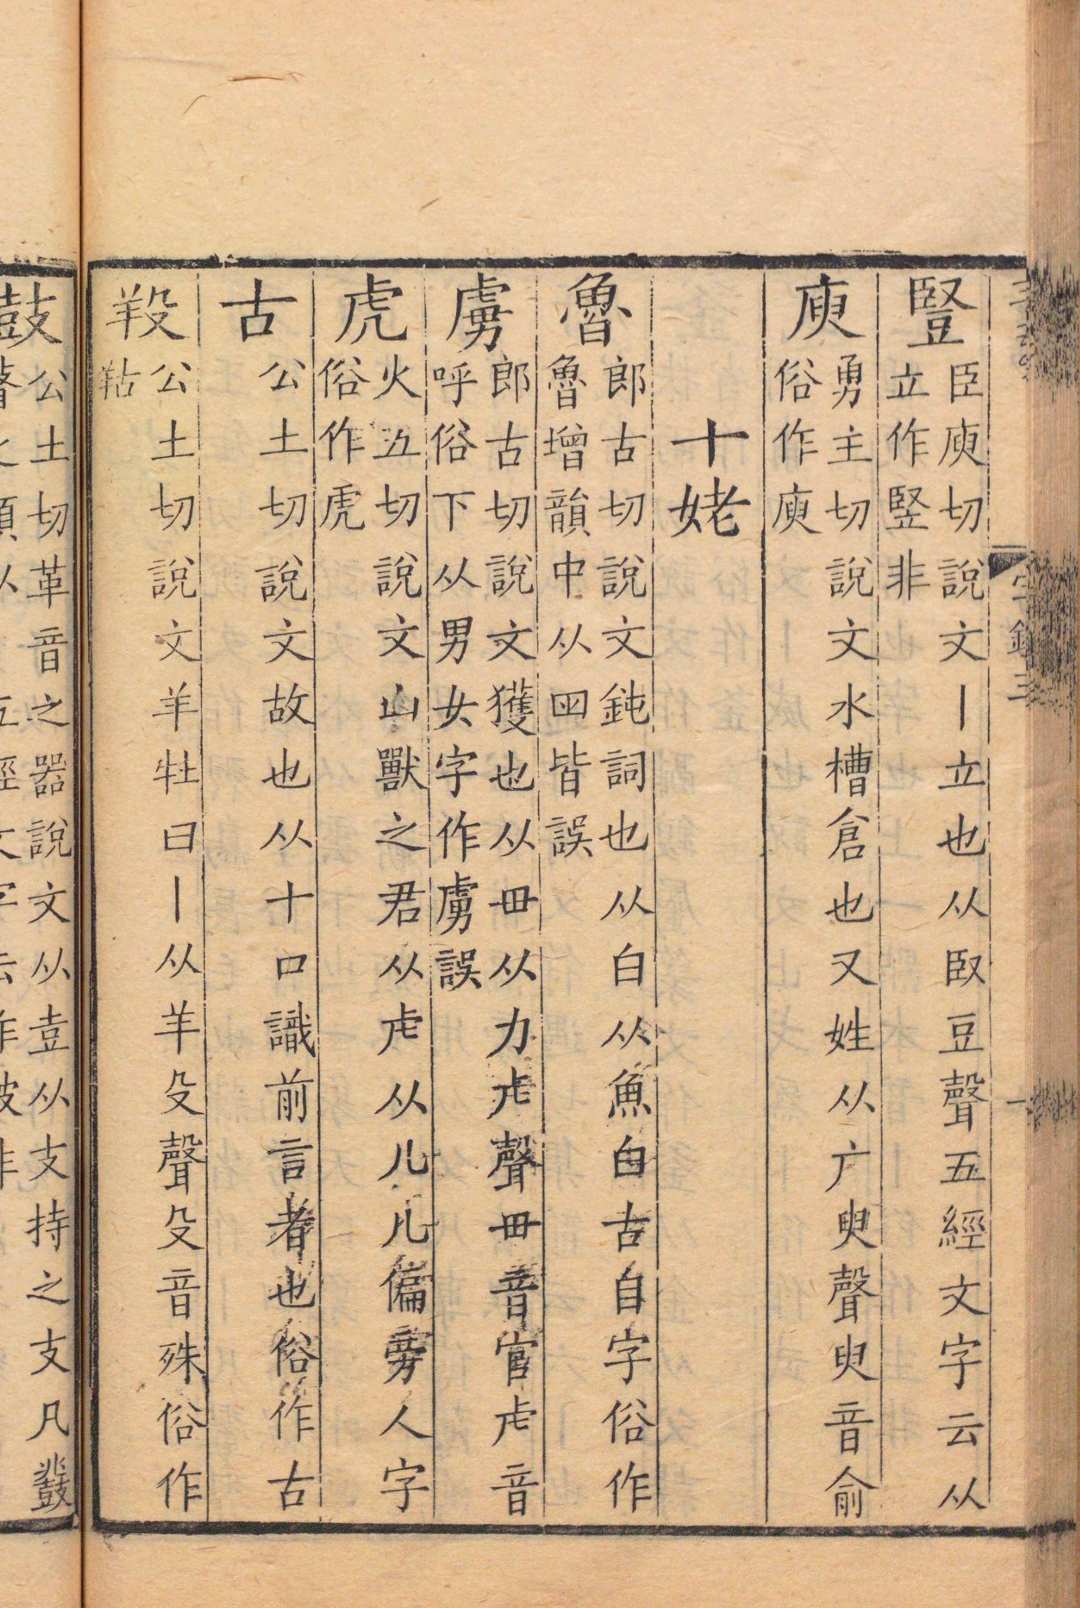 豎臣庾切說文丨立也从臤豆聲五經文字云从
立作竪非
庾勇主切說文水槽倉也又姓从广臾聲臾音俞
俗作庾
十姥
魯郎古切說文鈍詞也从白从魚白古自字俗作
魯增韻中从罒皆誤
虜郎古切說文獲也从毌从力虍聲毌音官虍音
呼俗下从男女字作虜誤
虎火五切說文山獸之君从虍从儿儿偏旁人字
俗作虎
古公土切說文故也从十口識前言者也俗作古
羖公土切說文羊牡曰丨从羊殳聲殳音殊俗作
䍩
鼓公土切革音之器說文从壴从支持之支凡鼗